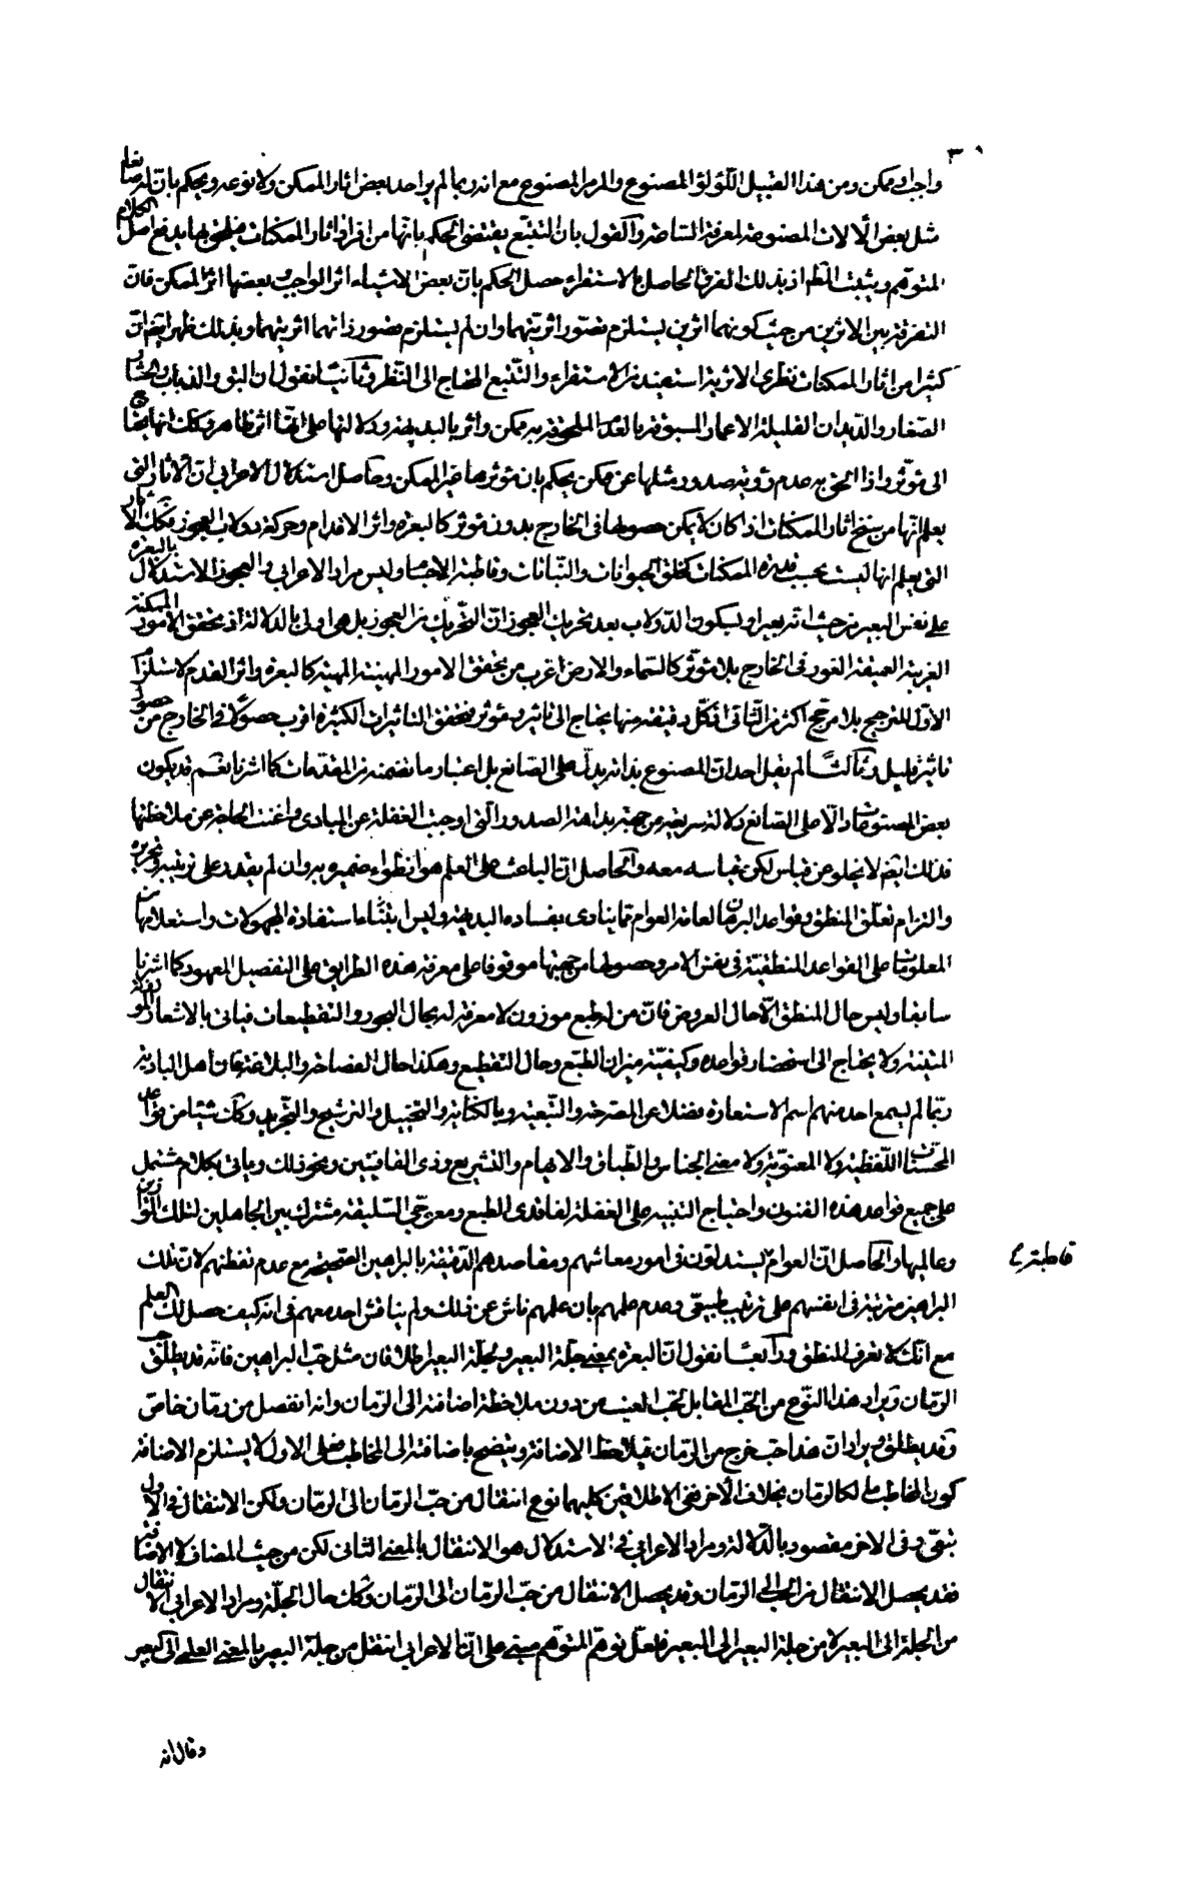 واجب او ممكن ومن هذا القبيل اللؤلؤ المصنوع والمرمر المصنوع مع انه ربما لم ير احد بعض اثار الممكن ولا نوعه ويحكم بان له صانعا
مثل بعض الآلات المصنوعة لمعرفة الساعة والقول بان التتبع يقتضى الحكم بانها من افراد اثار الممكنات
المتوهم ويثبت المط اذ بذلك الفرق الحاصل بالاستقراء حصل الحكم بان بعض الاشياء اثر الواجب وبعضها اثر الممكن فان
التفرقة بين الاثرين من حيث كونهما اثرين يستلزم تصور اثريتهما وان لم يستلزم تصور ذاتهما اثريتهما وبذلك ظهر ايضا ان
كثيرا من اثار الممكنات نظرى الاثرية استفيد من الاستقراء والتتبع المحتاج الى النظر وثانيا نقول ان البق والذباب
الصغار والديدان القليلة الاعمار المسبوقة بالعدم الملحوقة به ممكن واثر بالبديهة ودلالتها على انها اثر ظاهر وكك انها يحتاج
الى مؤثر واذا التحق به عدم رؤية صدور مثلها عن ممكن يحكم بان مؤثرها غير الممكن وحاصل استدلال الاعرابى ان الآثار التى
يعلم انها من سنخ اثار الممكنات اذا كان لا يمكن حصولها فى الخارج بدون مؤثر كالبعرة واثر الاقدام وحركة دولاب العجوز فكك الآثار
التى يعلم انها ليست بحسب قدرة الممكنات كخلق الحيوانات والنباتات وقاطبة الاجسام وليس مراد الاعرابى والعجوز الاستدلال بالبعرة
على نفس البعير من حيث انه بعير او بسكون الدولاب بعد تحريك العجوز ان التحريك من العجوز بل هى اولى بالدلالة اذ تحقق الامور الممكنة
الغريبة العميقة الغور فى الخارج بلا مؤثر كالسماء والارض اغرب من تحقق الامور المهينة كالبعرة واثر القدم لاستلزام
الاول للترجيح بلا مرجح اكثر من الثانى اذ كل دقيقة منها يحتاج الى تاثير ومؤثر فتحقق التاثيرات الكثيرة اقرب حصولا فى الخارج من حصول
تاثير قليل وثالثا لم يقل احد ان المصنوع بذاته يدل على الصانع بل اعتبار ما تضمنه من المقدمات كما اشرنا نعم قد يكون
بعض المصنوعات دالا على الصانع دلالة سريعة من جهة بداهة الصدور التى اوجبت الغفلة عن المبادى واغنت الحاجة عن ملاحظتها
فذلك ايضا لا يخلو عن قياس لكن قياسه معه والحاصل ان الباعث على العلم هو انطواء ضميره به وان لم يقدر على ترتيبه وتحريره
والتزام تعلق المنطق وقواعد البرهان لعامة العوام مما ينادى بفساده البديهة وليس ابتناء استفادة المجهولات واستعلامها من
المعلومات على القواعد المنطقية فى نفس الامر وحصولها من جهتها موقوفا على معرفة هذه الطرايق على التفصيل المعهود كما اشرنا
سابقا وليس حال المنطق الا حال العروض فان من له طبع موزون لا معرفة له بحال البحور والتقطيعات فياتى بالاشعار الموزونة
المتينة ولا يحتاج الى استحضار قواعده وكيفية ميزان الطبع وحال التقطيع وهكذا حال الفصاحة والبلاغة فان اهل البادية
ربما لم يسمع احد منهم اسم الاستعارة فضلا عن المصرحة والتبعية وبالكناية والتخييل والترشيح والتجريد وكك شيئا من قواعد
المحسنات اللفظية ولا المعنوية ولا معنى الجناس والطباق والايهام والتشريع وذى القافيتين ونحو ذلك وياتى بكلام مشتمل
على جميع قواعد هذه الفنون واحتياج التنبيه على الغفلة لفاقدى الطبع ومعوجى السليقة مشترك بين الجاهلين لتلك القوانين
وعالميها والحاصل ان العوام يستدلون فى امور معاشهم ومقاصدهم الدقيقة بالبراهين الصحيحة مع عدم تفطنهم لان تلك
قاطبة
البراهين مرتبة فى انفسهم على ترتيب طبيعى وعدم علمهم بان علمهم ناش عن ذلك ولم يناقش احد معهم فى انه كيف حصل لك العلم
مع انك لا تعرف المنطق ورابعا نقول ان البعرة بمعنى جلة البعير ولجلة البعير اطلاقان مثل حب البراهين فانه قد يطلق حب
الرمان ويراد هذا النوع من الحب المقابل لحب العنب من دون ملاحظة اضافته الى الرمان وانه انفصل من رمان خاص
وقد يطلق ويراد ان هذا حب خرج من الرمان فيلاحظ الاضافة ويتضح باضافته الى المخاطب فعلى الاول لا يستلزم الاضافة
كون المخاطب مالكا للرمان بخلاف الآخر ففى الاطلاقين كليهما نوع انتقال من حب الرمان الى الرمان ولكن الانتقال فى الاول
تبعى وفى الآخر مقصود بالدلالة ومراد الاعرابى فى الاستدلال هو الانتقال بالمعنى الثانى لكن من حيث المضاف لا الاضافة
فقد يحصل الانتقال من الحب الى الرمان وقد يحصل الانتقال من حب الرمان الى الرمان وكك حال الجلة ومراد الاعرابى الانتقال
من الجلة الى البعير لا من جلة البعير الى البعير فلعل توهم المتوهم مبنى على ان الاعرابى انتقل من جلة البعير بالمعنى العلمى الى البعير
وقال انه